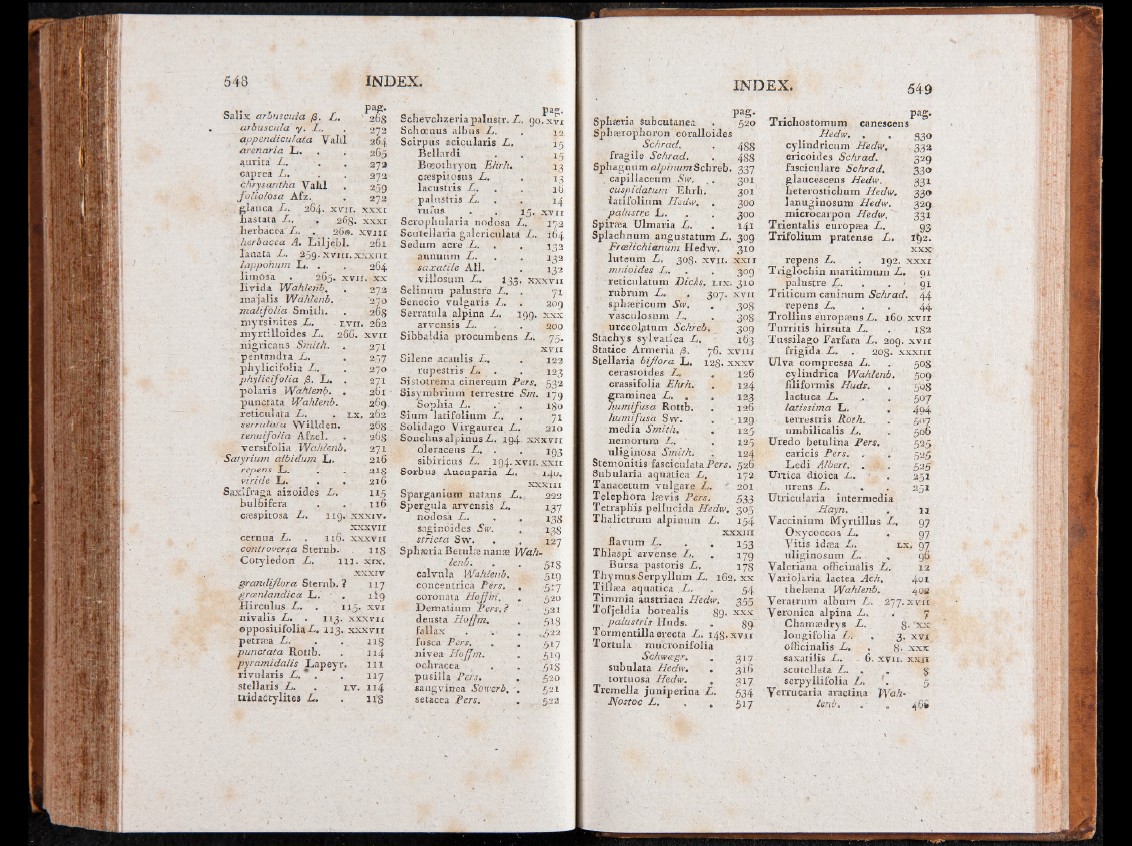 548 INDEX.
pag.
Salix arbuscula β. L. 268
arbuscula γ. L. 272
appendiculata Vahl 264
arenaria L. . . 265
aurita L. . . 272
caprea L. . . 272
chrysantha Vahl . 259
foliolosa Afz. . 272
glauca L. 264. XVII. XXXI
hastata L. . 268. XXXI
herbacea L. . 260. XVIII
herbacea A. Liljebl. 261
lanata L. 259. XVIII. XXXIII
lapponum L. . . 264
limosa . 265. XVII. XX
livida Wahlenb. . 272
majalis Wahlenb. 270
malifolia Smith. . 268
myrsinites L. . LVII. 262
myrtilloides L. 266. XVII
nigricans Smith. . 271
pentandra L. . 257
phylicifolia L. . 270
phylicifolia β. L. . 271
polaris Wahlenb. . 261
punctata Wahlenb. 269
reticulata L. . LX. 262
serrulata Willden. 268
tenuifolia Afzel. . 268
versifolia Wahlenb. 271
Satyrium albidum L. 216
repens L. . . 218
viride L. . . 216
Saxifraga aizoides L. 115
bulbifera . . 116
cæspitosa L. 119. XXXIV.
XXXVII
cernua L. . 116. XXXVII
controversa Sternb. 118
Cotyledon L. 111. XIX.
XXXIV
grandiflora Sternb. ? 117
grœnlandica L. . 119
Hirculus L. . 115. XVI
nivalis L. . 113. XXXVII
oppositifolia L. 113. XXXVII
petræa L. . . 118
punctata Rottb. . 114
pyramidalis Lapeyr. 111
rivularis L. . . 117
stellaris L. . LV. 114
tridactylites L. . 118
pag.
Schevchzeria palustr. L. 90. XVI
Schœnus albus L. . 12
Scirpus acicularis L. 15
Bellardi . . 15
Bæothryon Ehrh. 13
cæspitosus L. . 13
lacustris L. . . 16
palustris L. . . 14
rufus . . 15. XVII
Scrophularia nodosa L. 172
Scutellaria galericulata L. 164
Sedum acre L. . . 132
annuum L. . . 132
saxatile All. . 132
villosum L. 133. XXXVII
Selinum palustre L. . 71
Senecio vulgaris L. . 209
Serratula alpina L. 199. XXX
arvensis L. . . 200
Sibbaldia procumbens L. 75.
XVII
Silene acaulis L. . 122
rupestris L. . . 123
Sistotrema cinereum Pers. 532
Sisymbrium terrestre Sm. 179
Sophia L. . . 180
Sium latifolium L. . 71
Solidago Virgaurea L. 210
Sonchus alpinus L. 194. XXXVII
oleraceus L. . . 193
sibiricus L. 194. XVII. XXII
Sorbus Aucuparia L. 140.
XXXIII
Sparganium natans L. 222
Spergula arvensis L. 137
nodosa L. . . 138
saginoides Sw. . 138
stricta Sw. . . 127
Sphæria Betulæ nanæ Wah-
lenb. . . 518
calvula Wahlenb. 519
concentrica Pers. . 517
coronata Hoffm. . 520
Dematium Pers. ? 521
deusta Hoffm. . 518
fallax . . . 522
fusca Pers. . . 517
nivea Hoffm. . 519
ochracea . . 518
pusilla Pers. . 520
sangvinea Sowerb. . 521
setacea Pers. . 522
INDEX. 549
pag.
Sphæria subcutanea . 520
Sphærophoron coralloides
Schrad. . 488
fragile Schrad. . 488
Sphagnum alpinum Schreb. 337
capillaceum Sw. . 301
cuspidatum Ehrh. 301
latifolium Hedw. . 300
palustre L. . . 300
Spiræa Ulmaria L. . 141
Splachnum angustatum L. 309
Frœlichianum Hedw. 310
luteum L. 308. XVII. XXII
mnioides L. . . 309
reticulatum Dicks. LIX. 310
rubrum L. . 307. XVII
sphæricum Sw. . 308
vasculosum L. . 308
urceolatum Schreb. 309
Stachys sylvatica L. 163
Statice Armeria β. 76. XVIII
Stellaria biflora L. 128. XXXV
cerastoides L. . 126
crassifolia Ehrh. . 124
graminea L. . . 123
humifusa Rottb. . 126
humifusa Sw. . 129
media Smith. . 125
nemorum L. . 125
uliginosa Smith. . 124
Stemonitis fasciculata Pers. 526
Subularia aquatica L. 172
Tanacetum vulgare L. 201
Telephora lævis Pers. 533
Tetraphis pellucida Hedw. 305
Thalictrum alpinum L. 154
XXXIII
flavum L. . . 153
Thlaspi arvense L. . 179
Bursa pastoris L. . 178
Thymus Serpyllum L. 162. XX
Tillæa aquatica L. . 54
Timmia austriaca Hedw. 355
Tofjeldia borealis 89. XXX
palustris Huds. . 89
Tormentilla erecta L. 148. XVII
Tortula mucronifolia
Schwægr. . 317
subulata Hedw. . 316
tortuosa Hedw. . 317
Tremella juniperina L. 534
Nostoc L. . . 517
pag.
Trichostomum canescens
Hedw. . . 330
cylindricum Hedw. 332
ericoides Schrad. 329
fasciculare Schrad. 330
glaucescens Hedw. 331
heterostichum Hedw. 330
lanuginosum Hedw. 329
microcarpon Hedw. 331
Trientalis europæa L. 93
Trifolium pratense L. 192.
XXX
repens L. . 192. XXXI
Triglochin maritimum L. 91
palustre L. . . 91
Triticum caninum Schrad. 44
repens L. . . 44
Trollius europæus L. 160. XVII
Turritis hirsuta L. . 182
Tussilago Farfara L. 209. XVII
frigida L. . 208. XXXIII
Ulva compressa L. . 508
cylindrica Wahlenb. 509
filiformis Huds. . 508
lactuca L. . . 507
latissima L. . 494
terrestris Roth. . 507
umbilicalis L. . 506
Uredo betulina Pers. 525
caricis Pers. . . 525
Ledi Albert. . . 525
Urtica dioica L. . 251
urens L. . . 251
Utricularia intermedia
Hayn. . 11
Vaccinium Myrtillus L. 97
Oxycoccos L. . 97
Vitis idæa L. LX. 97
uliginosum L. . 96
Valeriana officinalis L. 12
Variolaria lactea Ach. 401
thelæna Wahlenb. 402
Veratrum album L. 277. XVII
Veronica alpina L. . 7
Chamædrys L. 8. XX
longifolia L. . 3. XVI
officinalis L. . 8. XXX
saxatilis L. . 6. XVII. XXII
scutellata L. . . 8
serpyllifolia L. . 5
Verrucaria aractina Wah-
lenb. . . 466